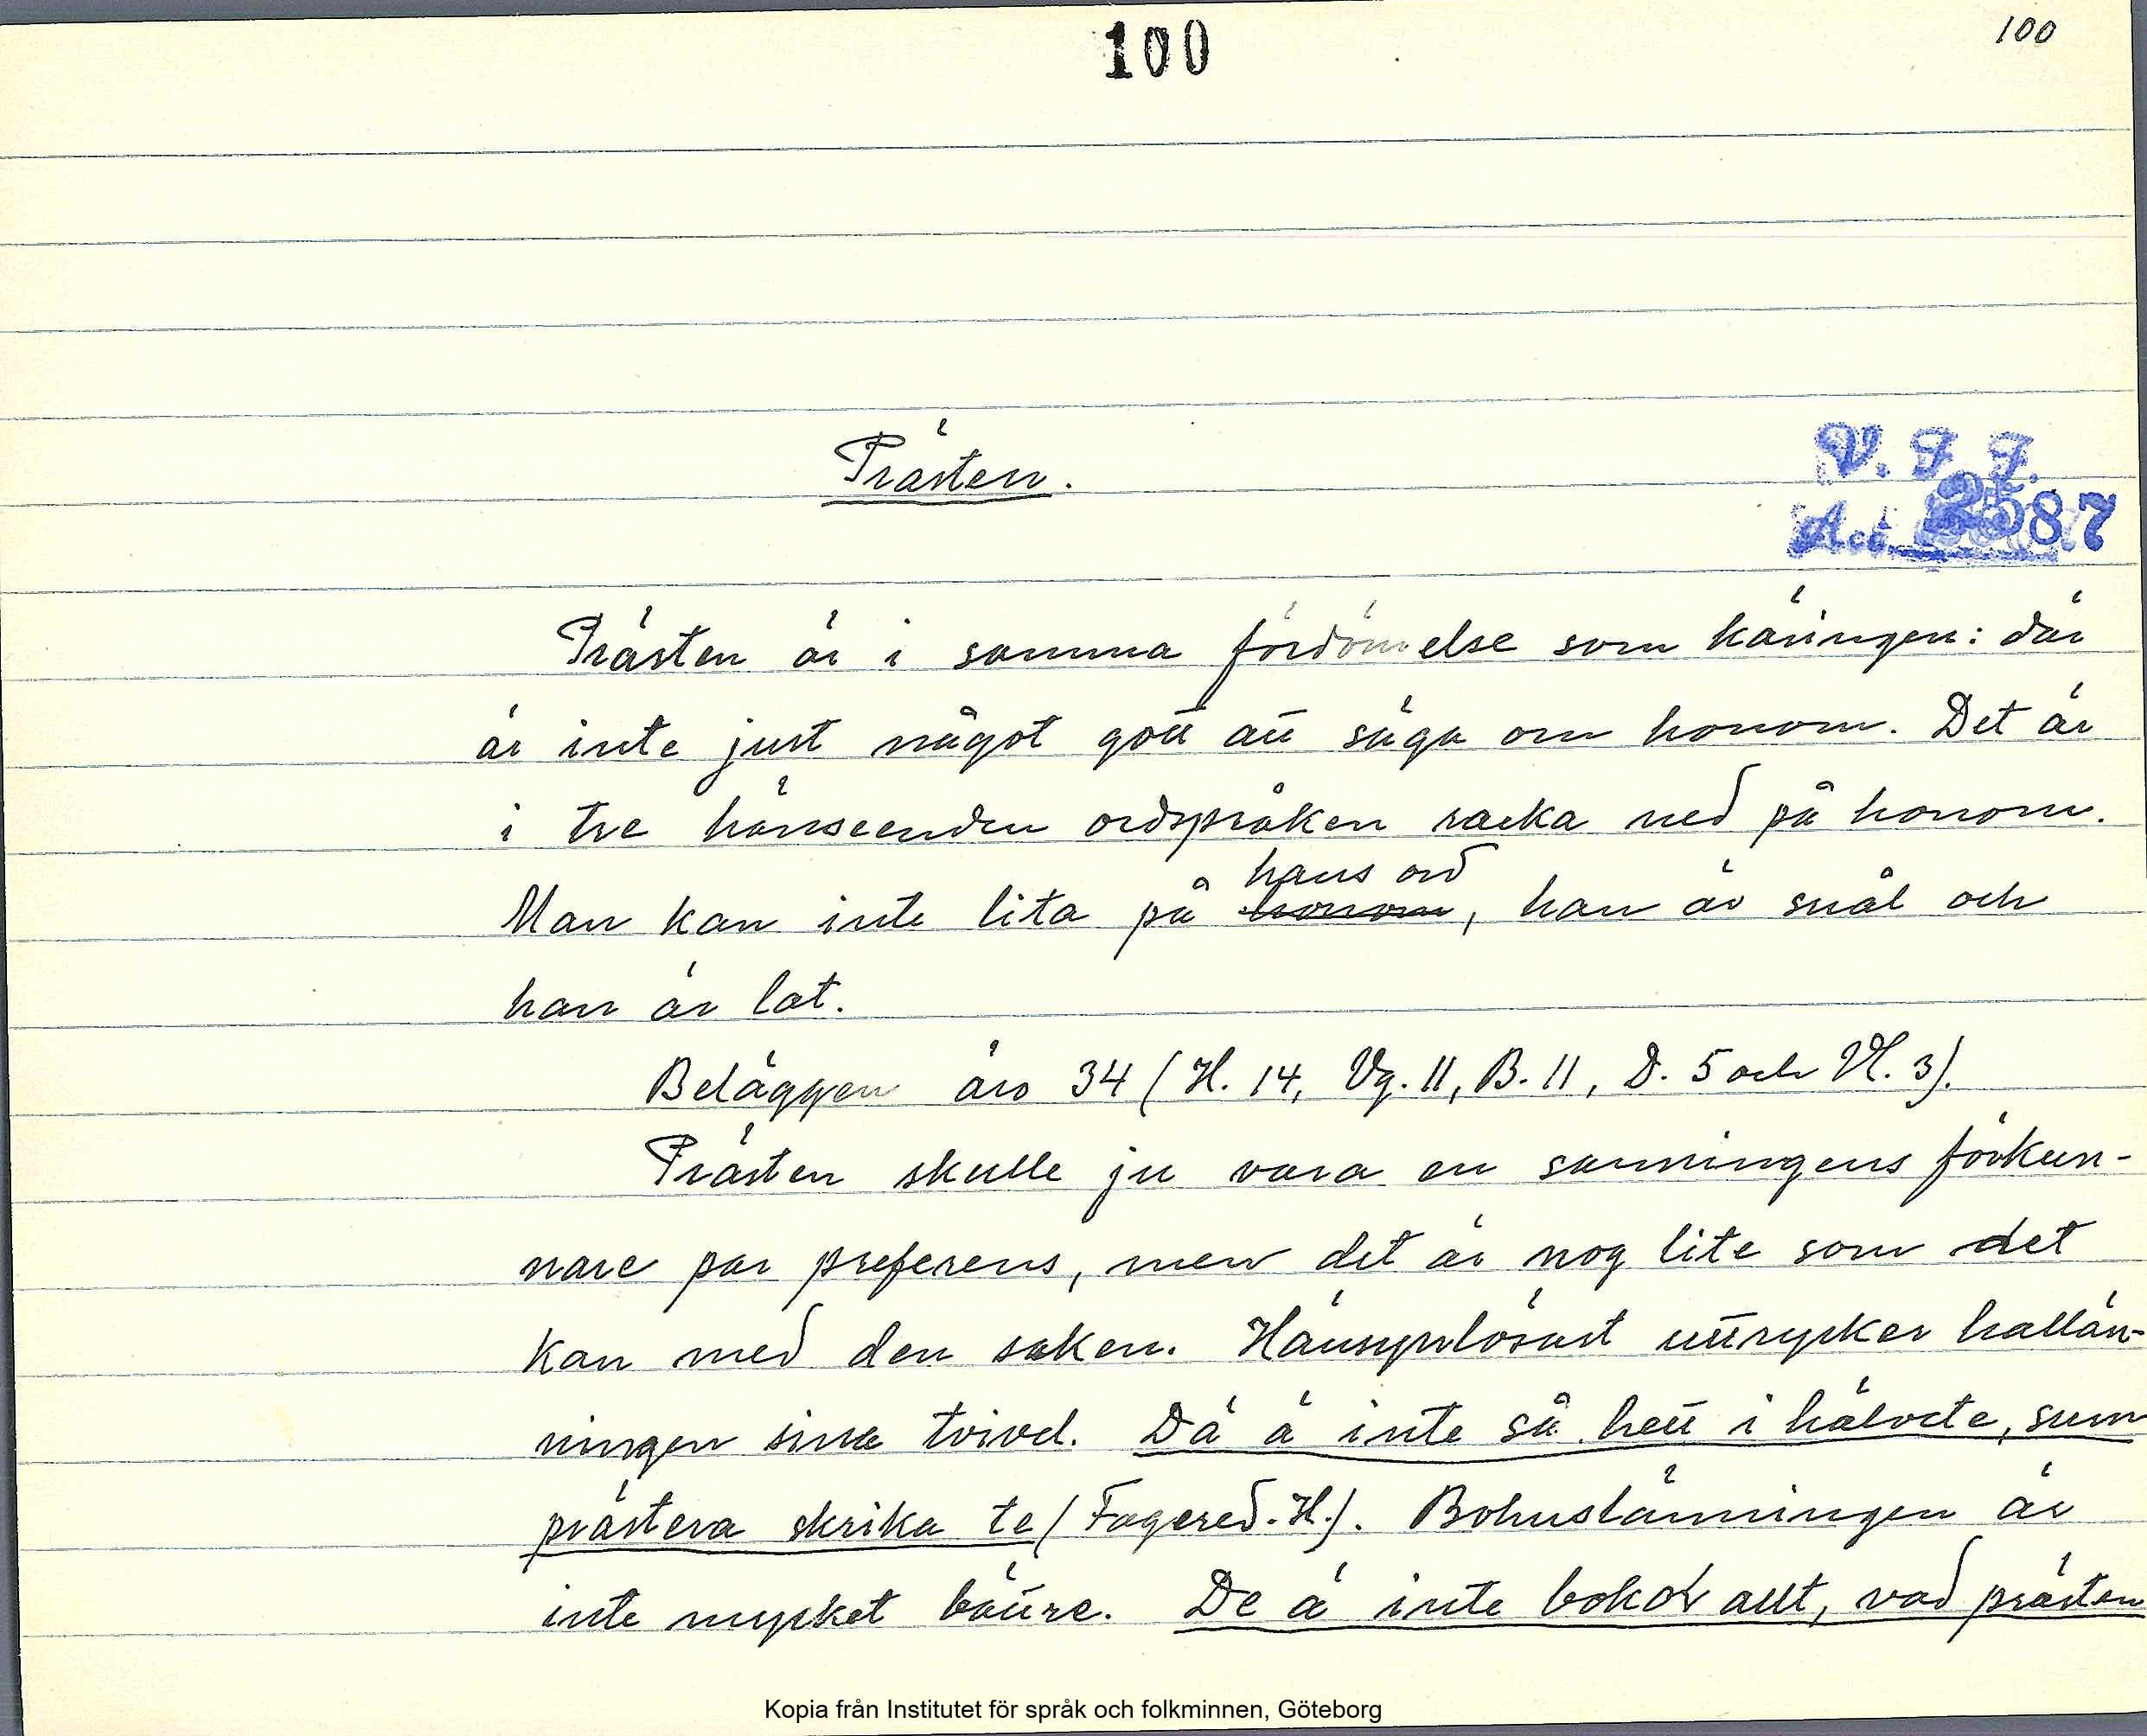 100
100
Prästen.
V. F. F.
Acc. 2587
Prästen är i samma fördömelse som käringen: där
är inte just något gott att säga om honom. Det är
i tre hänseenden ordspråken racka ned på honom.
hans ord
Man kan inte lita på honom, han är snål och
han är lat.
Beläggen äro 34 (H. 14, Vg. 11, B. 11, D. 5 och Vl. 3).
Prästen skulle ju vara en sanningens förkun-
nare par preferens, men det är nog lite som det
kan med den saken. Hänsynlösast uttrycker hallän-
ningen sina tvivel. Dä ä inte så hett i hälvete, sum
prästera skrika te (Fagered. H.). Bohuslänningen är
inte mycket bättre. De ä inte bokol allt, vad prästen
Kopia från Institutet för språk och folkminnen, Göteborg